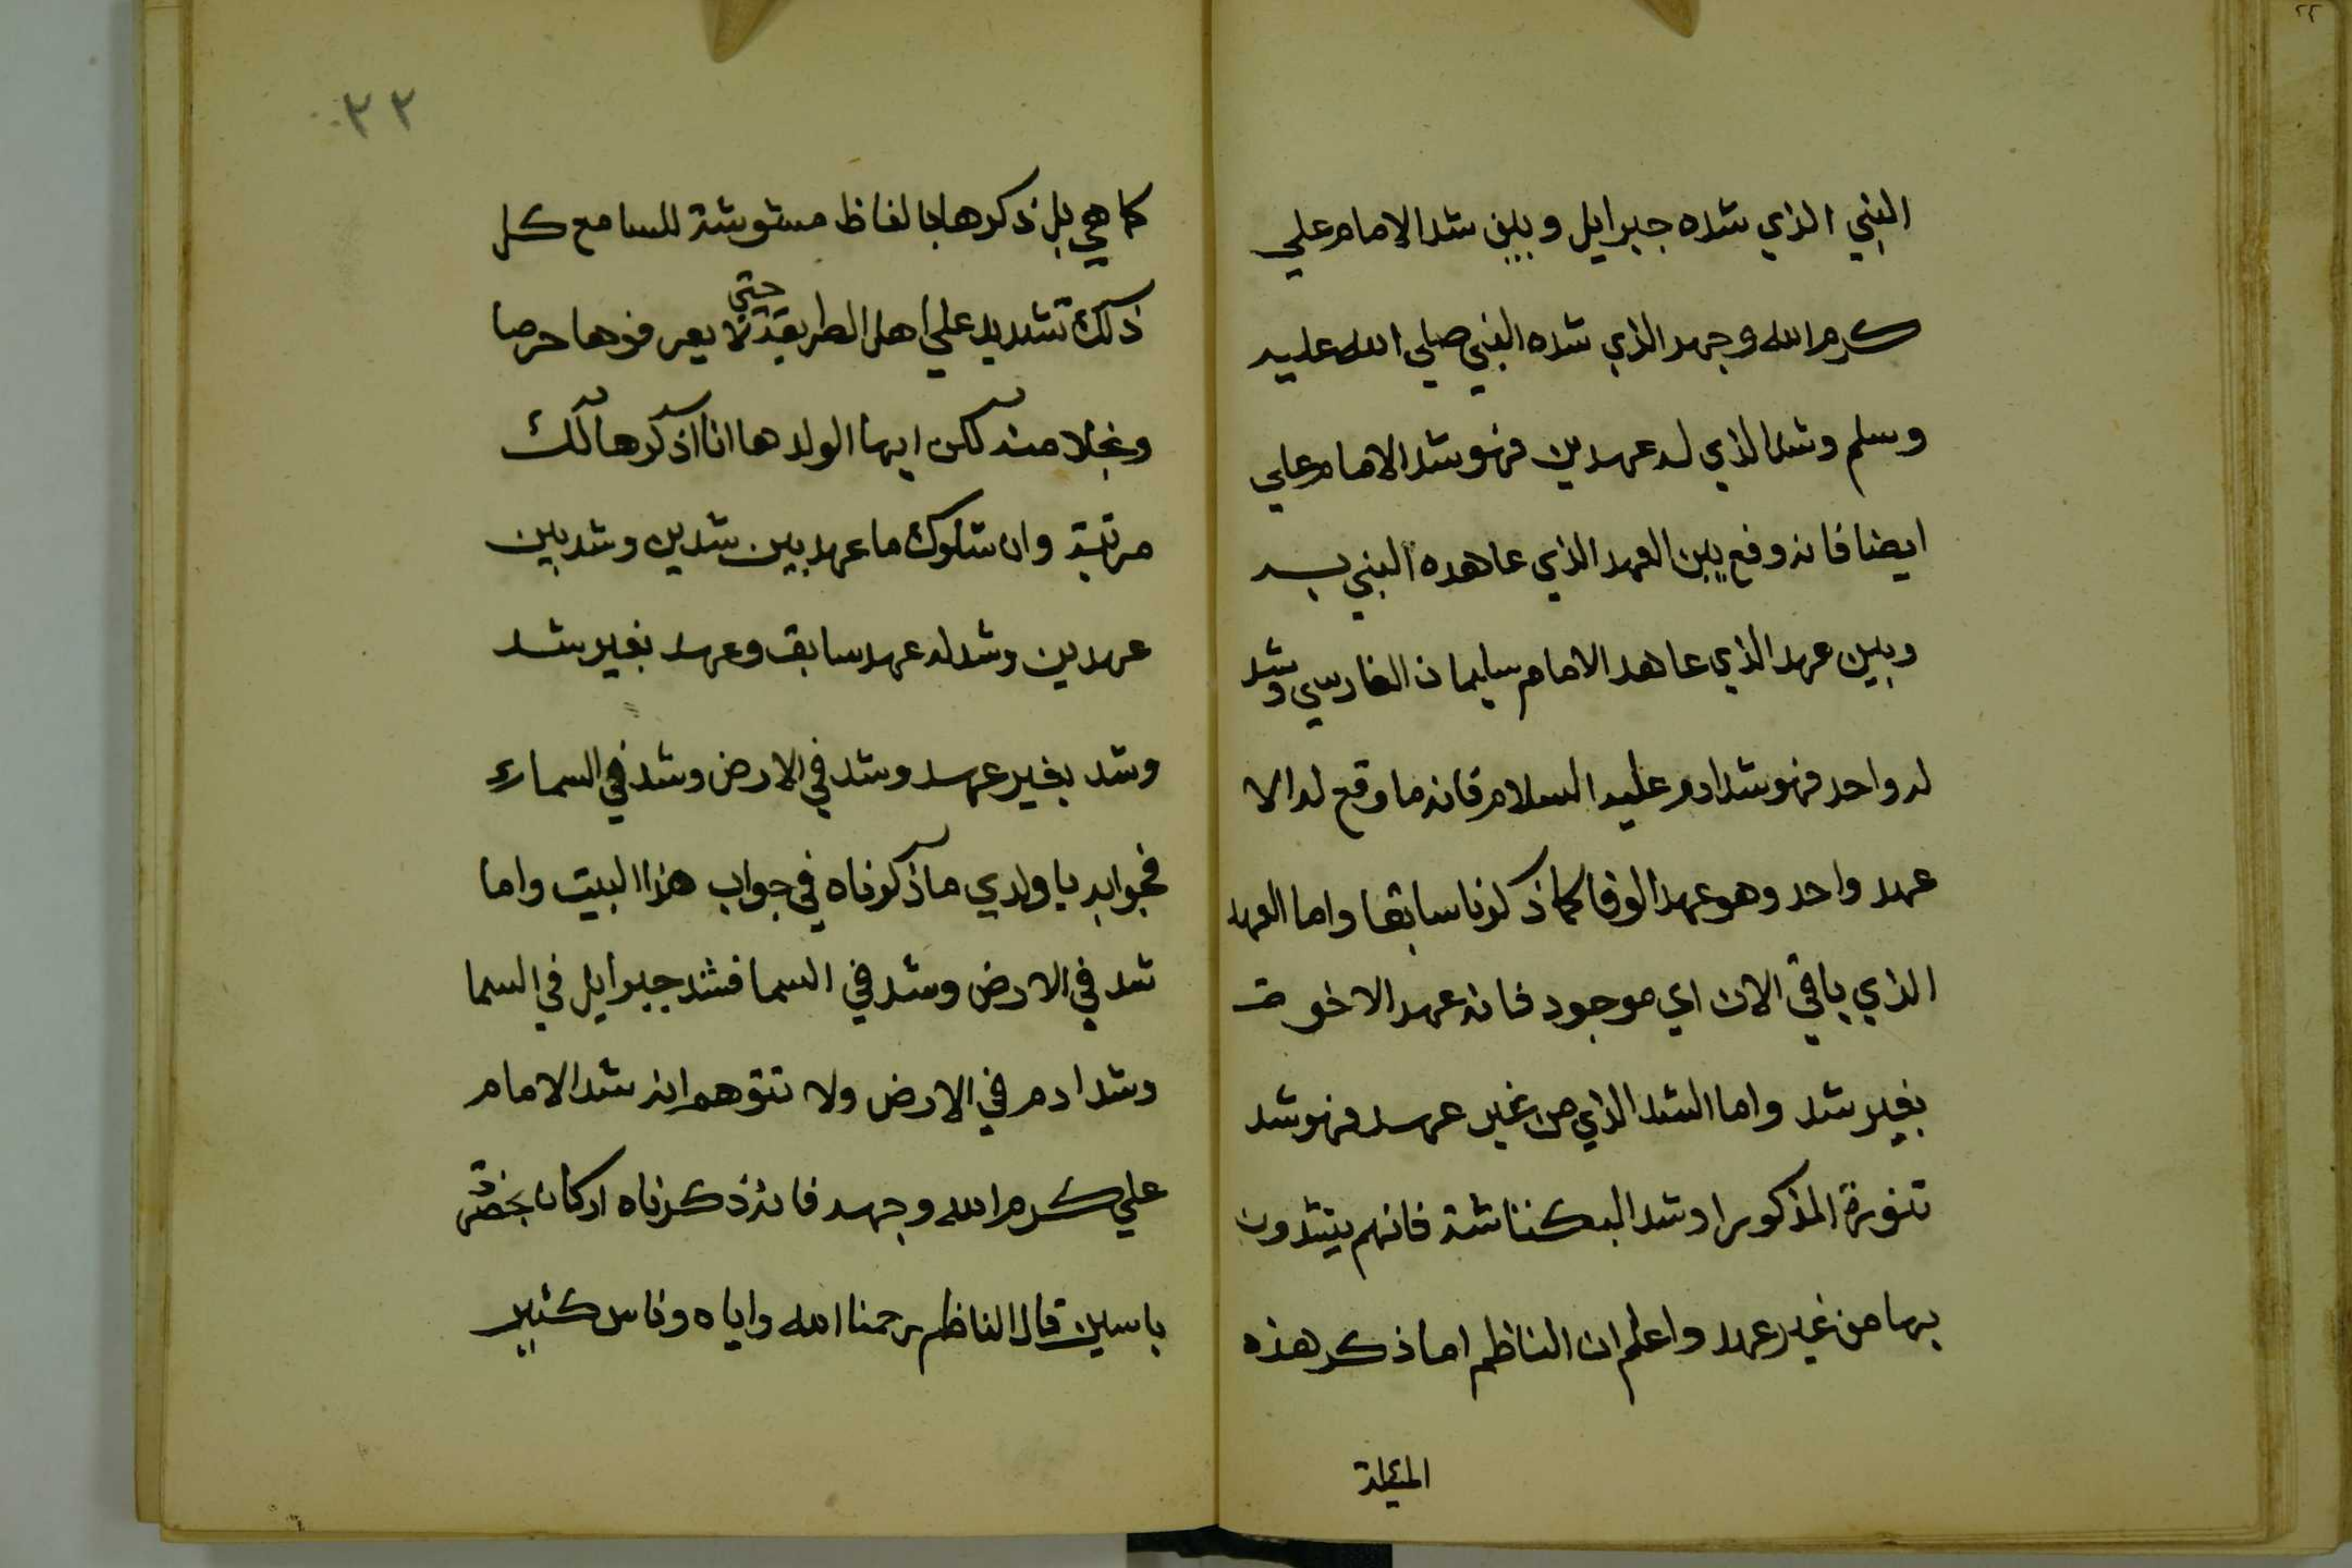 النبي الذي شده جبرايل وبين شد الامام علي
كرم الله وجهه الذي شده النبي صلي الله عليه
وسلم وشد الذي له عهدين فهو شد الامام علي
ايضا فانه وقع بين العهد الذي عاهده النبي به
وبين عهد الذي عاهد الامام سليمان الفارسي وشد
له واحد فهو شد ادم عليه السلام فانه ما وقع له الا
عهد واحد وهو عهد الوفا كما ذكرنا سابقا واما العهد
الذي باقي الان اي موجود فانه عهد الاخوة
بغير شد واما الشد الذي من غير عهد فهو شد
المذكور او شد البكتاشة فانهم يشدون
بها من غير عهد واعلم ان الناظم اما ذكر هذه
المسئلة
٣٢
كما هي بل ذكرها بالفاظ مشوشة للسامع كل
ذلك تشديد علي اهل الطريقة حتي لا يعرفوها حرصا
وبخلا منه لكن ايها الولد ها انا اذكرها لك
مرتبة وان سئلوك ما عهد بين شدين وشد بين
عهدين وشد له عهد سابق وعهد بغير شد
وشد بغير عهد وشد في الارض وشد في السماء
فجوابه يا ولدي ما ذكرناه في جواب هذا البيت واما
شد في الارض وشد في السما فشد جبرايل في السما
وشد ادم في الارض ولا تتوهم انه شد الامام
علي كرم الله وجهه فانه ذكرناه اركان
ياسين قال الناظم رحمنا الله واياه وناس كثير